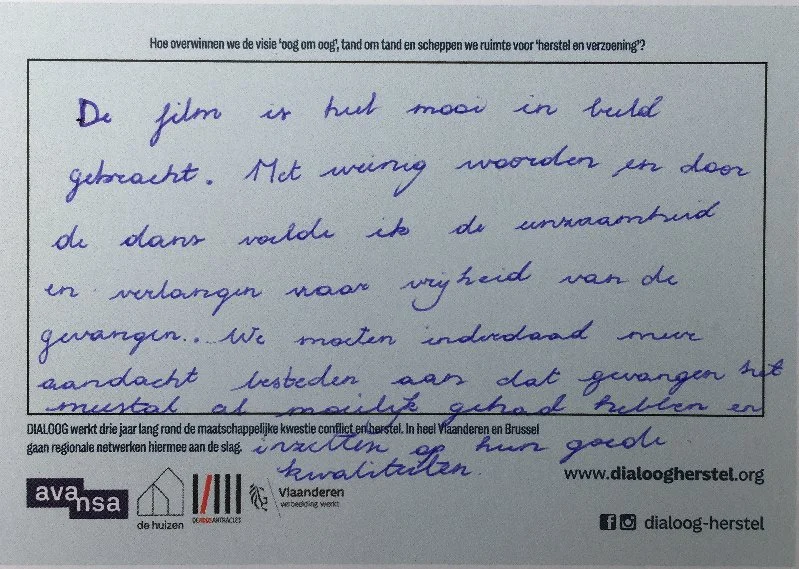 Hoe overwinnen we de visie 'oog om oog', tand om tand en scheppen we ruimte voor 'herstel en verzoening'?
De film is heel mooi in beeld
gebracht. Met weinig woorden en door
de dans voelde ik de eenzaamheid
en verlangen naar vrijheid van de
gevangen.. We moeten inderdaad meer
aandacht besteden aan dat gevangen het
meestal al moeilijk gehad hebben en
DIALOOG werkt drie jaar lang rond de maatschappelijke kwestie conflict en herstel. In heel Vlaanderen en Brussel
gaan regionale netwerken hiermee aan de slag.
inzetten op hun goede
kwaliteiten.
www.dialoogherstel.org
avansa
de huizen
DERODEANTRACIET
Vlaanderen
verbeelding werkt
dialoog-herstel